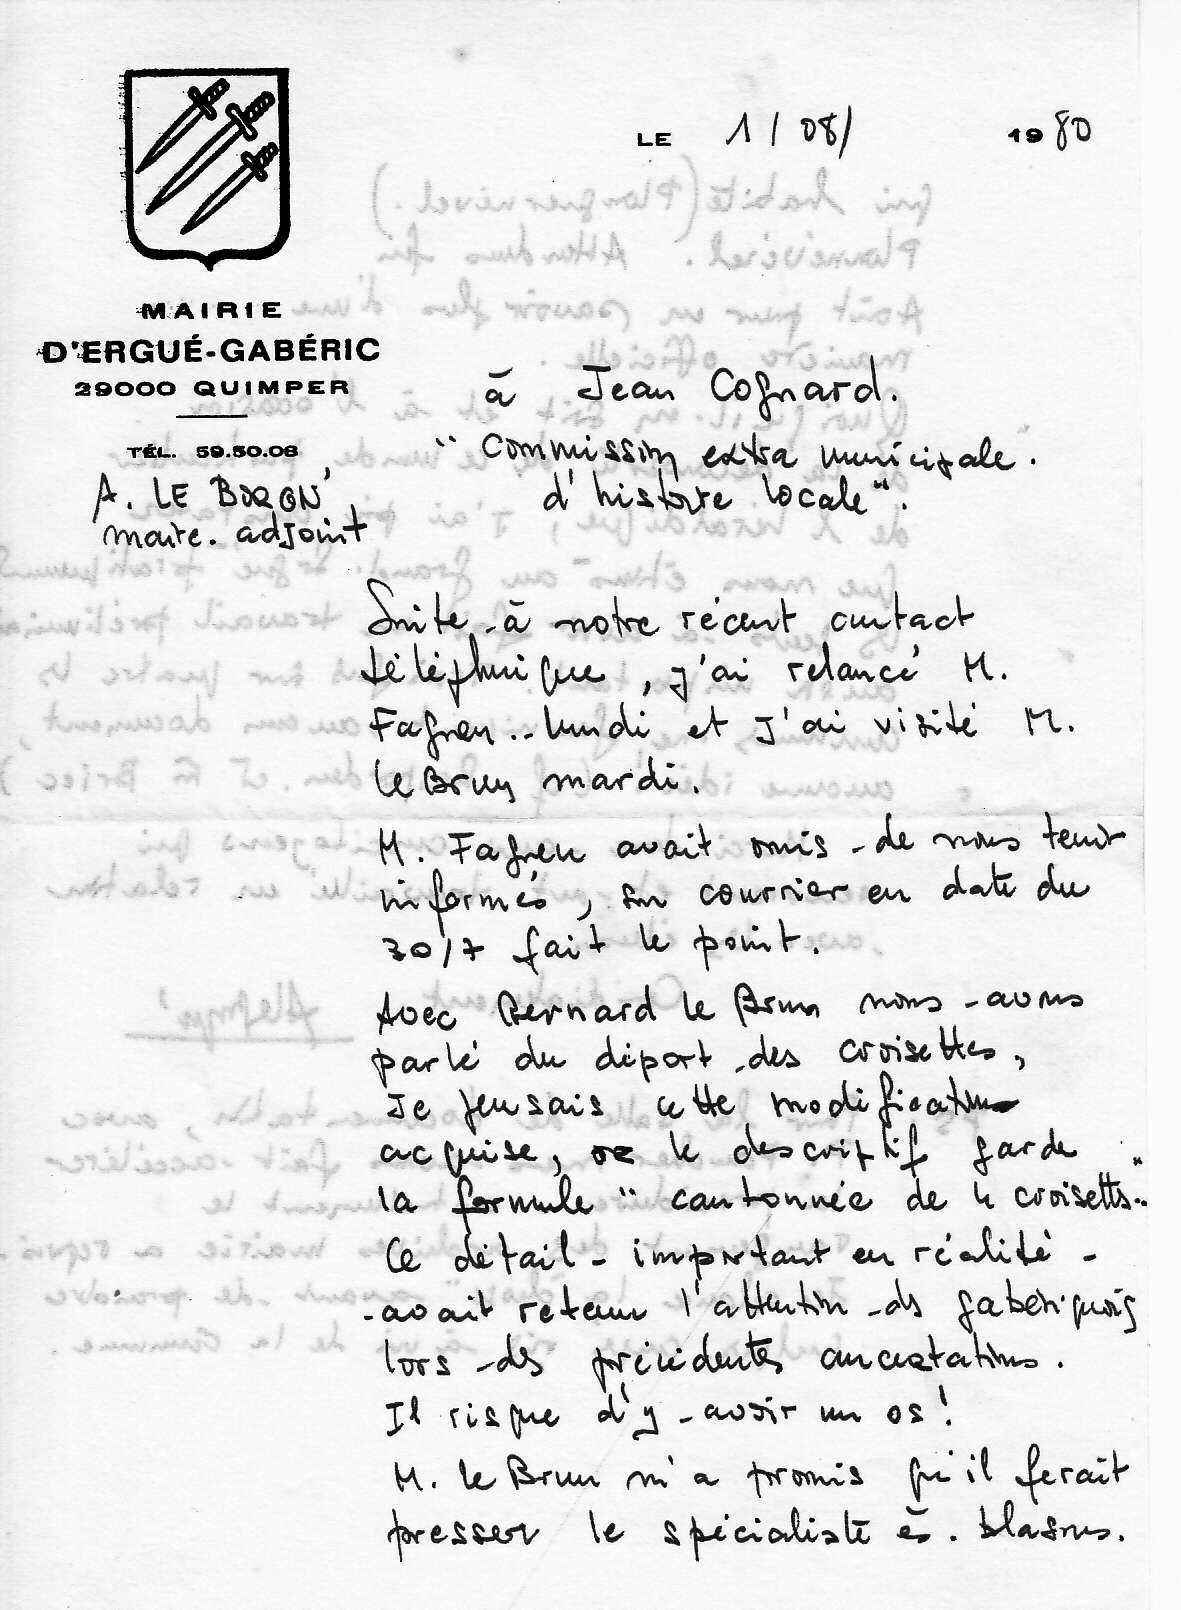 LE 1/08/ 1980
MAIRIE
D'ERGUÉ-GABÉRIC
29000 QUIMPER
TÉL. 59.50.08
A. LE BORGN'
maire. adjoint
à Jean Cognard.
"Commission extra municipale.
d'histoire locale".
Suite à notre récent contact
téléphonique, j'ai relancé M.
Fagnen.. lundi et j'ai visité M.
le Brun mardi.
M. Fagnen avait omis de nous tenir
informés, son courrier en date du
30/7 fait le point.
Avec Bernard le Brun nous avons
parlé du départ des croisettes,
Je pensais cette modification
acquise, or le descriptif garde
la formule "cantonnée de 4 croisettes"..
Ce détail - important en réalité -
avait retenu l'attention des gabériquois
lors des précédentes concertations.
Il risque d'y avoir un os !
M. le Brun m'a promis qu'il ferait
presser le spécialiste ès. blasons.